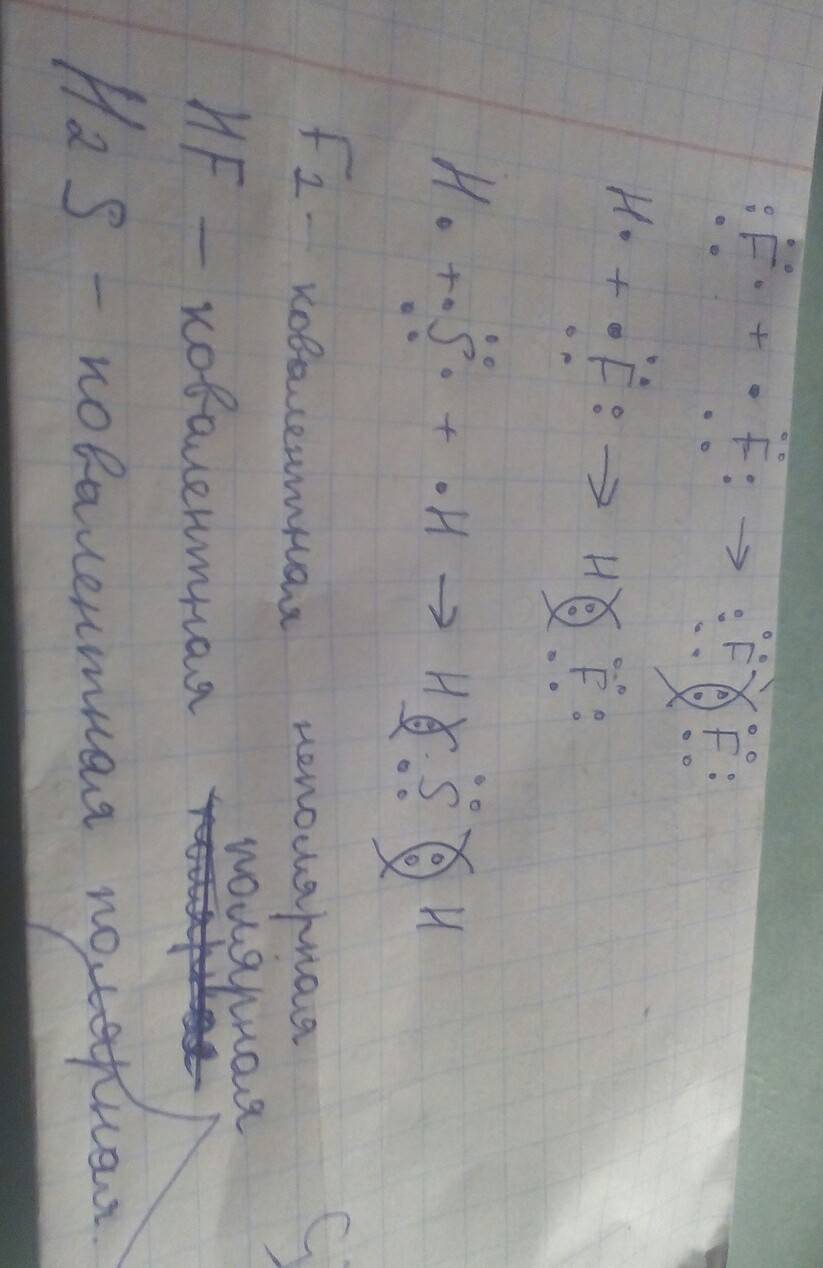 :F̤̈· + ·F̤̈: → :F̤̈(:)F̤̈:
H· + ·F̤̈: → H(:)F̤̈:
H· + ·S̤̈· + ·H → H(:)·S̤̈(:)H
F2 - ковалентная неполярная
HF - ковалентная полярная
H2S - ковалентная полярная.